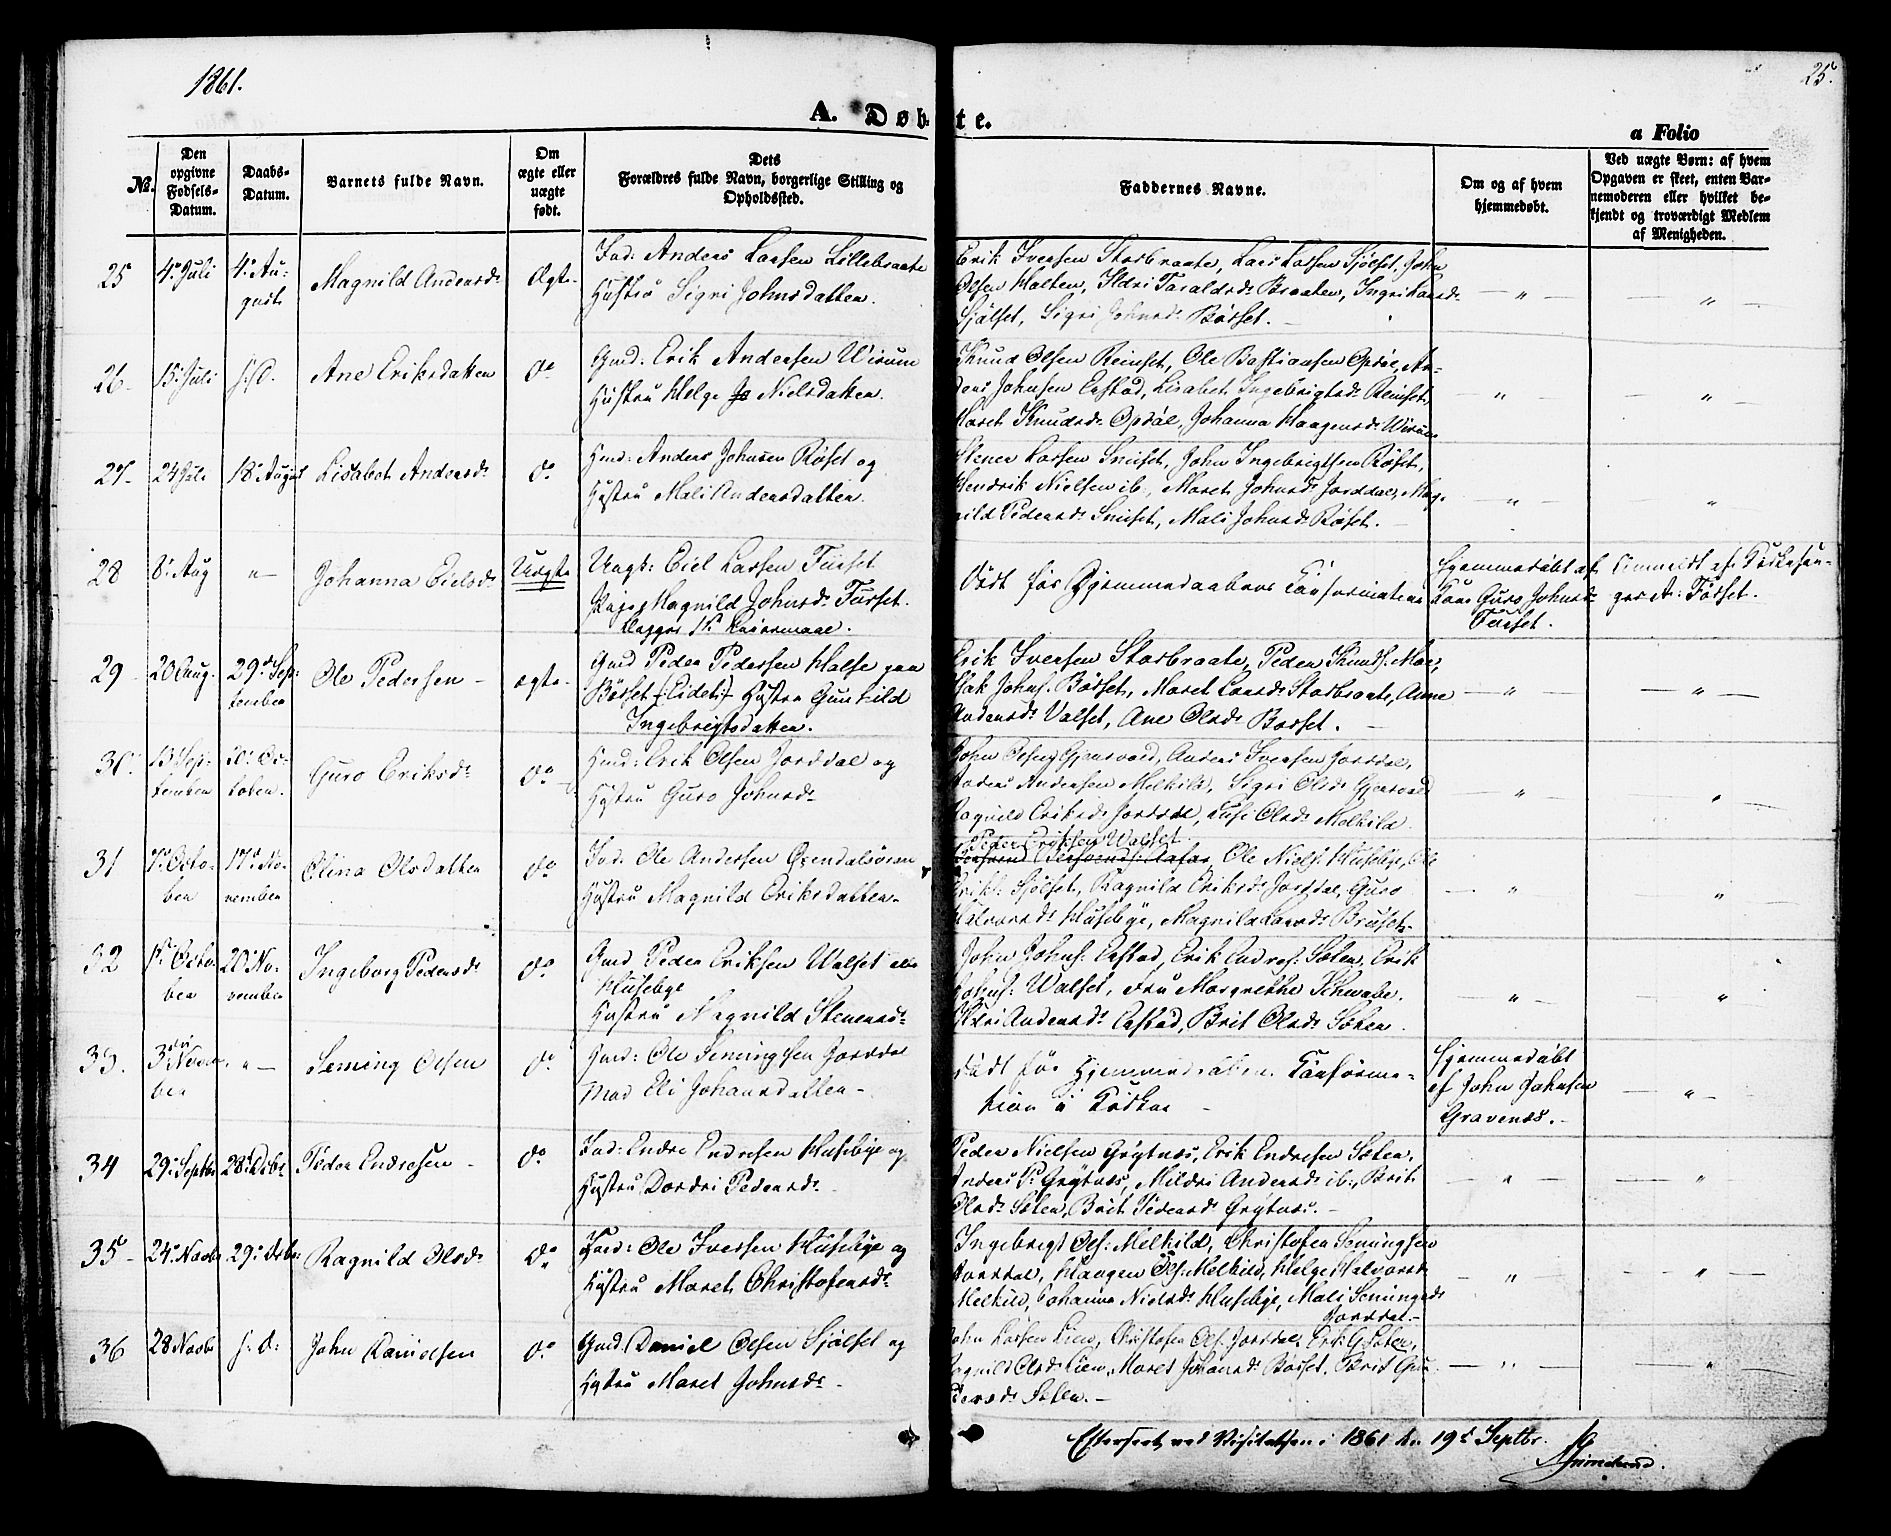 1861.
25.
A. Døbte.
a Folio
No.
Den opgivne Fødsels-Datum.
Daabs-Datum.
Barnets fulde Navn.
Om ægte eller uægte født.
Dets Forældres fulde Navn, borgerlige Stilling og Opholdssted.
Faddernes Navne.
Om og af hvem hjemmedøbt.
Ved uægte Børn: af hvem Opgaven er skeet, enten Barnemoderen eller hvilket bekjendt og troværdigt Medlem af Menigheden.
25 4de Juli 4de August Magnild Andersd. Ægte
Anders Larsen Lillebraate
Hustrø Sigri Johnsdatter.
Erik Iversen Storbraate, Lars Larsen Sjølset, John
Olsen Holten, Ildri Taraldsd. Braaten, Ingri Larsd.
Sjølset, Sigri Johnsd. Børset.
26 15. Juli s.D. Ane Eriksdatter do
Gmd: Erik Andersen Wirum
Hustru Helge Nielsdatter.
Knud Olsen Reinset, Ole Bastiansen Opdøl, An-
ders Johnsen Erstad, Lisabet Ingebrigtsd. Reinset,
Maret Knudsd. Opdøl, Johanna Haagensd. Wirum
27 24 Juli 18. August Lisabet Andersd. do
Anders Johnsen Røset og
Hustru Mali Andersdatter.
Stener Larsen Sniset, John Ingebrigtsen Røset,
Hendrik Nielsen ib., Maret Johnsd. Jorddal, Mag-
nild Pedersd. Sniset, Mali Johnsd. Røset.
28 8. Aug " Johanna Eielsd. Uægte
Ungk: Eiel Larsen Furset
Pige Magnild Johnsd. Furset.
Begges 1ste Leiermaal.
Død før Hjemmedaabens Confirmation
Hjemmedøbt af
Kone Guro Johnsd.
Furset.
Anmeldt af Kirkesan-
ger A: Førset.
29 20 Aug. 29de September Ole Pedersen ægte
Gmd Peder Pedersen Halse paa
Børset (Eidet) Hustru Gunhild
Ingebrigtsdatter.
Erik Iversen Storbraate, Peder Knuds. Moe,
Isak Johns. Børset, Maret Larsd. Storbraate, Anne
Andersd. Valset, Ane Olsd. Børset.
30. 13 September 20. October. Guro Eriksd. do
Erik Olsen Jorddal og
Hustru Guro Johnsd.
John Olsen Gjersvold, Anders Iversen Jorddal,
Anders Andersen Melkild, Sigri Olsd. Gjersvold
Ragnild Eriksd. Jorddal, Olsd. Melkild
31 7. October 17. November Olina Olsdatter do
Ole Andersen
Hustru Magnild Eriksdatter.
Peder Eriksen Walset
Ole Niels. Husebye, Ole
Eriks. Sjølset, Ragnild Eriksd. Jorddal, Guro
Halvorsd. Husebye, Magnild Larsd. Bruset.
32 October 20. November Ingeborg Pedersd. do
Gmd Peder Eriksen Walset
Husebye
Hustru Magnild Stenersd.
John Johns. Erstad, Erik Endres. Sæter, Erik
Johns: Walset, Fru Margrethe Schwabe.
Ildri Andersd. Erstad, Brit Olsd. Sæter.
33. 3. November " Seming Olsen do
Gmd: Ole Semingsen Jorddal
Mod Eli Johansdatter
død før Hjemmedaabens Confirma-
tion i Kirken
Hjemmedøbt
af John Johnsen
Gravenæs.
34 29. Septbr 28. Dcbr Peder Endresen do
Endre Endresen Husebye og
Hustru Dordri Pedersd.
Peder Nielsen Grøtnes, Erik Endresen Sæter,
Anders P. Grøtnes, Mildri Andersd. ib., Brit
Olsd. Sæter, Brit Pedersd. Grøtnes.
35 24. Novbr 29. Dcbr Ragnild Olsd. do
Ole Iversen Husebye og
Hustru Maret Christofersd.
Ingebrigt Ols. Melkild, Christofer Semingsen
Jorddal, Haagen Ols. Melkild, Helge Halvorsd.
Melkild, Johanna Nielsd. Husebye, Mali Semingsd.
Jorddal.
36 28 Novbr s.D. John Danielsen do
Gmd. Daniel Olsen Sjølset og
Hustru Maret Johnsd.
John Larsen Lien, Christofer Ols. Jorddal, Erik G. Sæter,
Ragnild Olsd. Lien, Maret Johansd. Børset, Brit Gun-
dersd. Sæter.
Efterseet ved Visitatsen i 1861 den 19d Septbr.